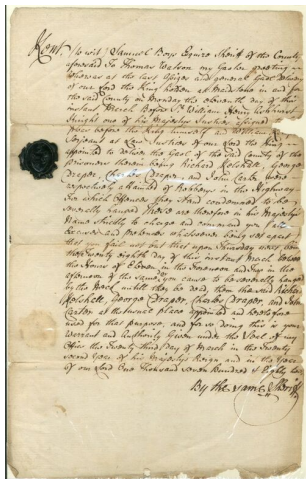 Kent (to wit) Samuel Boys Esquire Sheriff of the County
aforesaid To Thomas Watson my Gaoler greeting
Whereas at the last Assizes and general Gaol Delivery
of our Lord the King holden at Maidstone in and for
the said County on Monday the eleventh day of this
instant March Before Sir William Henry Ashhurst
Knight one of his Majestys Justices assigned
Pleas before the King himself and William
Serjeant at Law Justices of our Lord the King
appointed to deliver the Gaol of the said County of the
Prisoners therein being Richard Kelshell George
Draper, Charles Draper, and John Carter were
respectively attainted of Robberys in the Highway
For which Offences they stand condemned to be
severally hanged These are therefore in his Majestys
Name strictly to charge and command you
Excuses and pretences whatsoever being set apart
that you fail not but that upon Thursday next
the twenty eighth day of this instant March between
the Hours of Eleven in the forenoon and Two in the
afternoon of the same you cause to be severally hanged
by the Neck untill they be dead, them the said Richard
Kelshell, George Draper, Charles Draper, and John
Carter at the usual place appointed and heretofore
used for that purpose, and for so doing this is your
Warrant and Authority Given under the Seal of my
Office the Twenty third Day of March in the Twenty
second Year of his Majestys Reign and in the Year
of our Lord One Thousand seven Hundred & Eighty two
By the same Sheriff